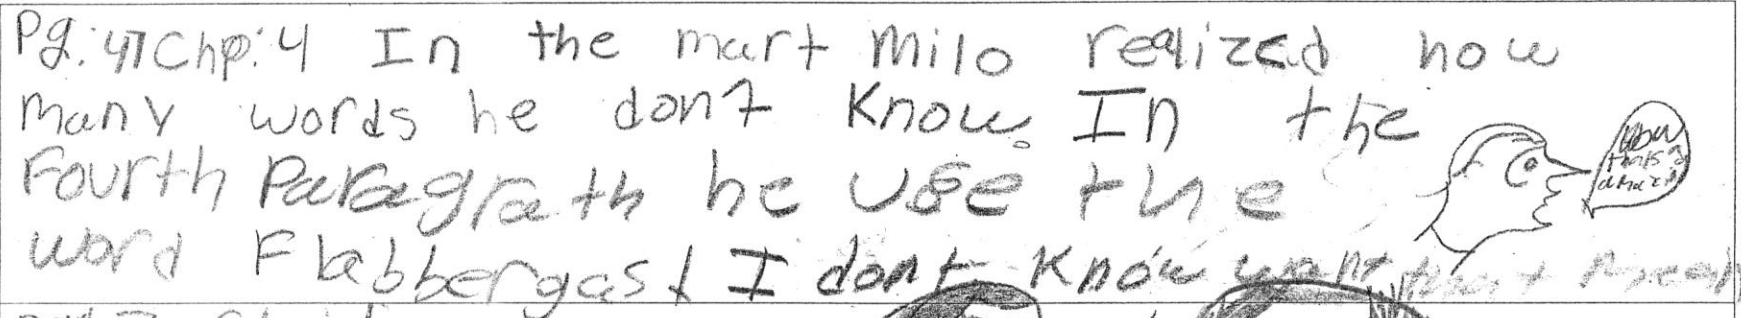 Pg:47 Chp:4 In the mart Milo realized how
many words he don't know. In the
Fourth Paragrath he use the
word Flabbergast I dont know want that mean
wow
thats